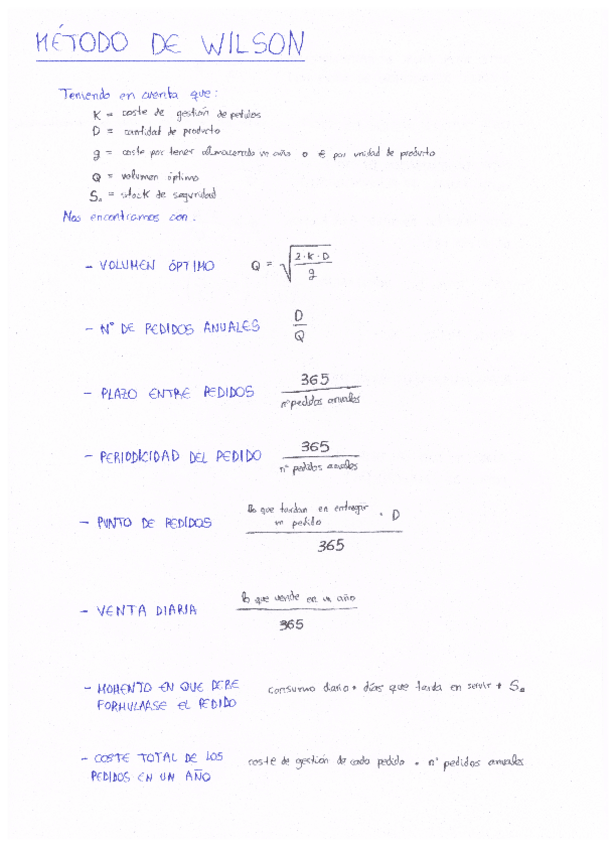 MÉTODO DE WILSON
Teniendo en cuenta que:
K = coste de gestión de pedidos
D = cantidad de producto
g = coste por tener almacenado un año o € por unidad de producto
Q = volumen óptimo
Sₐ = stock de seguridad
Nos encontramos con.
- VOLUMEN ÓPTIMO Q = √(2·K·D / g)
- Nº DE PEDIDOS ANUALES D / Q
- PLAZO ENTRE PEDIDOS 365 / nº pedidos anuales
- PERIODICIDAD DEL PEDIDO 365 / nº pedidos anuales
- PUNTO DE PEDIDOS lo que tardan en entregar un pedido · D / 365
- VENTA DIARIA lo que vende en un año / 365
- MOMENTO EN QUE DEBE consumo diario · días que tarda en servir + Sₐ
FORMULARSE EL PEDIDO
- COSTE TOTAL DE LOS coste de gestión de cada pedido · nº pedidos anuales
PEDIDOS EN UN AÑO